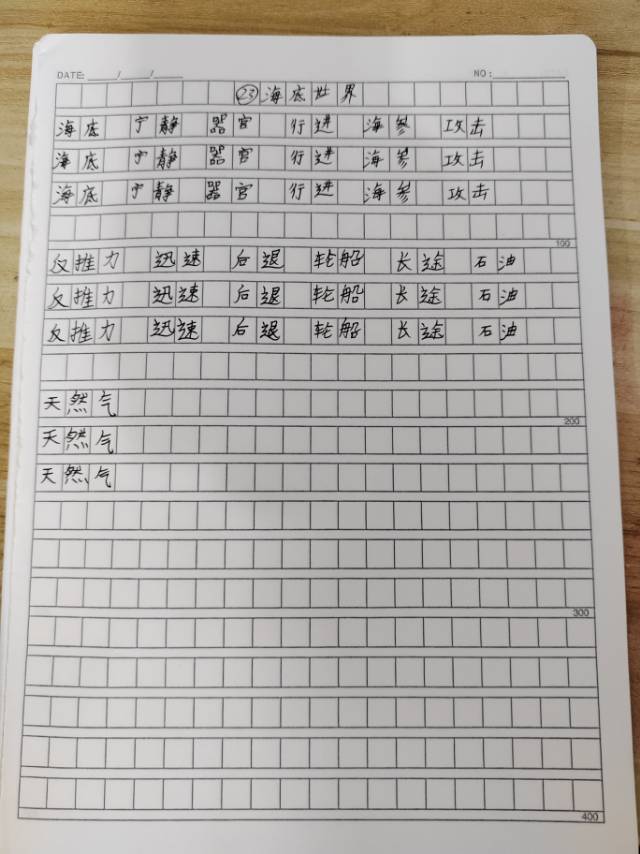 DATE: / / NO:
㉓海底世界
海底 宁静 器官 行进 海参 攻击
海底 宁静 器官 行进 海参 攻击
海底 宁静 器官 行进 海参 攻击
100
反推力 迅速 后退 轮船 长途 石油
反推力 迅速 后退 轮船 长途 石油
反推力 迅速 后退 轮船 长途 石油
天然气
200
天然气
天然气
300
400